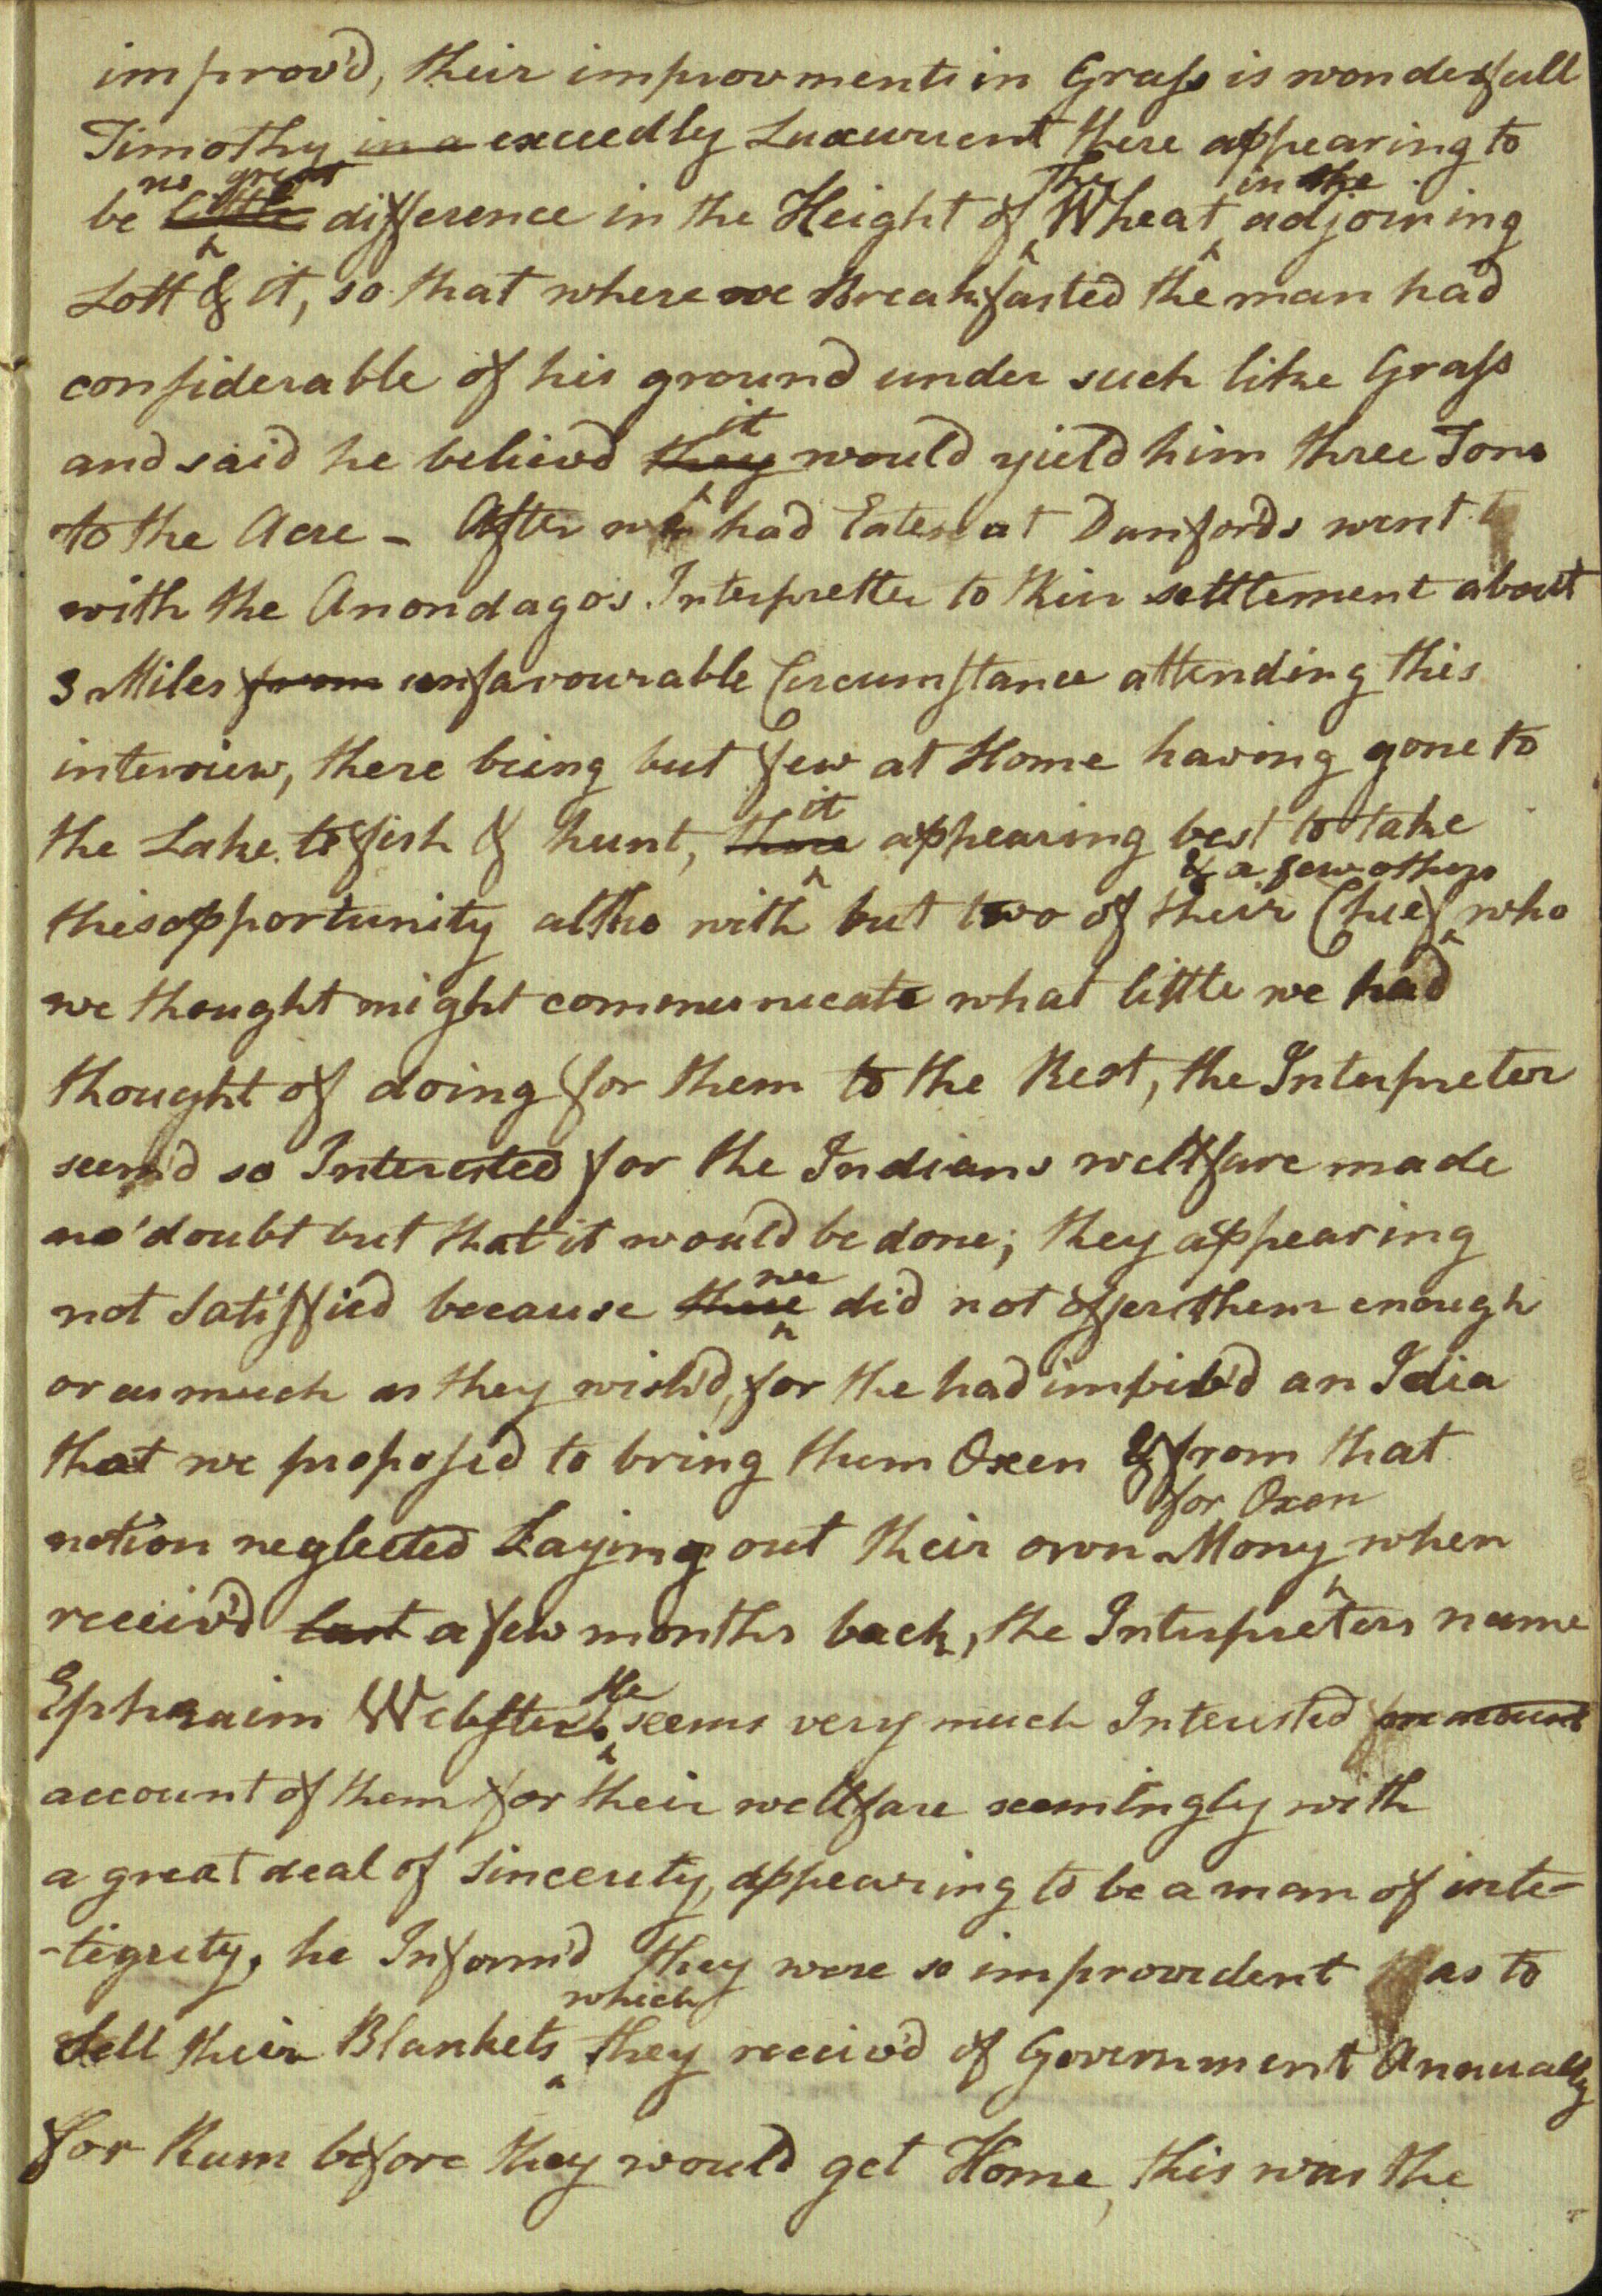 improv'd, their improvments in Grass is wonderfull
Timothy in a exceedly Luxurient there appearing to
be little no great difference in the Height of the Wheat in the adjoining
Lott & it, so that where we Breakfasted the man had
considerable of his ground under such like Grass
and said he believd they it would yield him three Tons
to the Acre - After we had Eaten at Danfords went to
with the Anondagos Interpretter to their settlement about
3 Miles from unfavourable Circumstance attending this
interview, there being but few at Home having gone to
the Lake to fish & hunt, there it appearing best to take
this opportunity altho with but two of their Chief & a few others who
we thought might communicate what little we had
thought of doing for them to the Rest, the Interpreter
seem'd so Interested for the Indians wellfare made
no doubt but that it would be done; they appearing
not Satisfied because there we did not offer them enough
or as much as they wish'd, for the had imbib'd an Idia
that we proposed to bring them Oxen & from that
notion neglected Laying out their own Mony for Oxen when
receiv'd last a few months back, the Interpreters name
Ephraim Webster, He seems very much Interested on account
account of them for their wellfare seemingly with
a great deal of sincerity, appearing to be a man of inte-
-tegrity, he Inform'd they were so improvident as to
Sell their Blankets which they receiv'd of Government Annually
for Rum before they would get Home, this was the